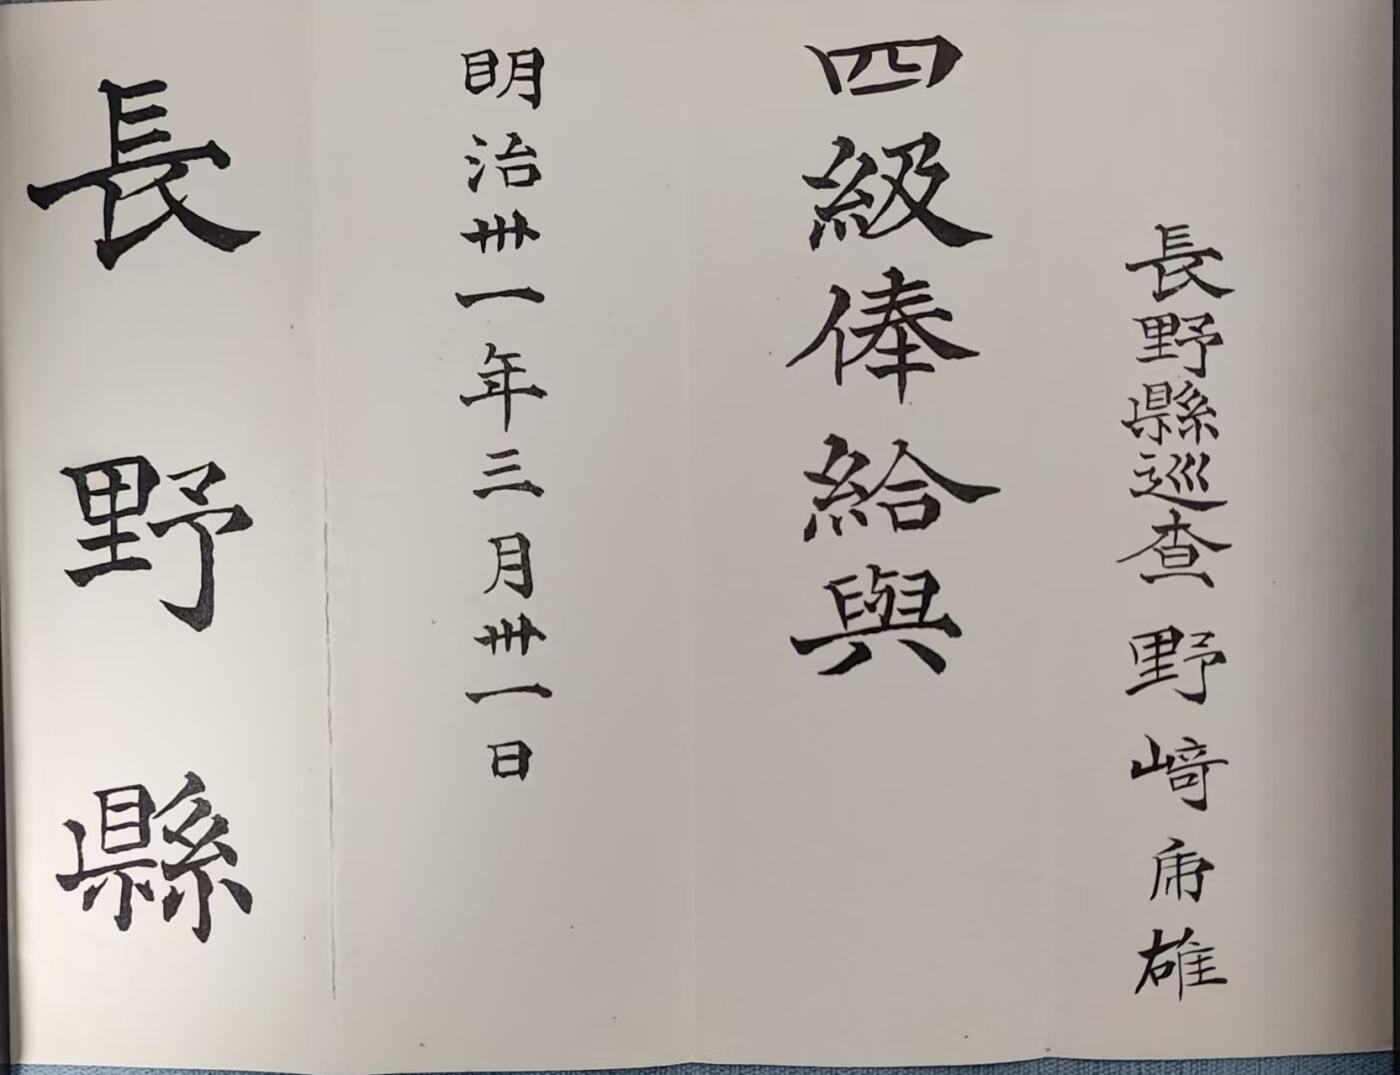 長野縣巡查 野﨑乕雄
四級俸給與
明治卅一年三月卅一日
長野縣